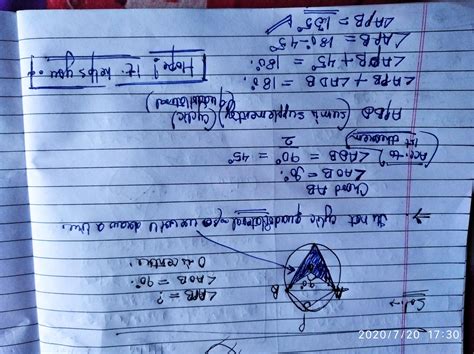 ∠APB = ?
∠AOB = 90°.
O is centre.
Soln →
P
A
B
90°
O
D
⇒ It is not cyclic quadrilateral
draw a line.
Chord AB
∠AOB = 90°
∠ADB = 90° = 45°
2
(Acc. to 1st theorem)
APBD (sum is supplementary) (Cyclic quadrilateral)
∠APB + ∠ADB = 180°.
∠APB + 45° = 180°.
∠APB = 180 - 45°
∠APB = 135°
Hope! It helps you..!
2020/7/20 17:30